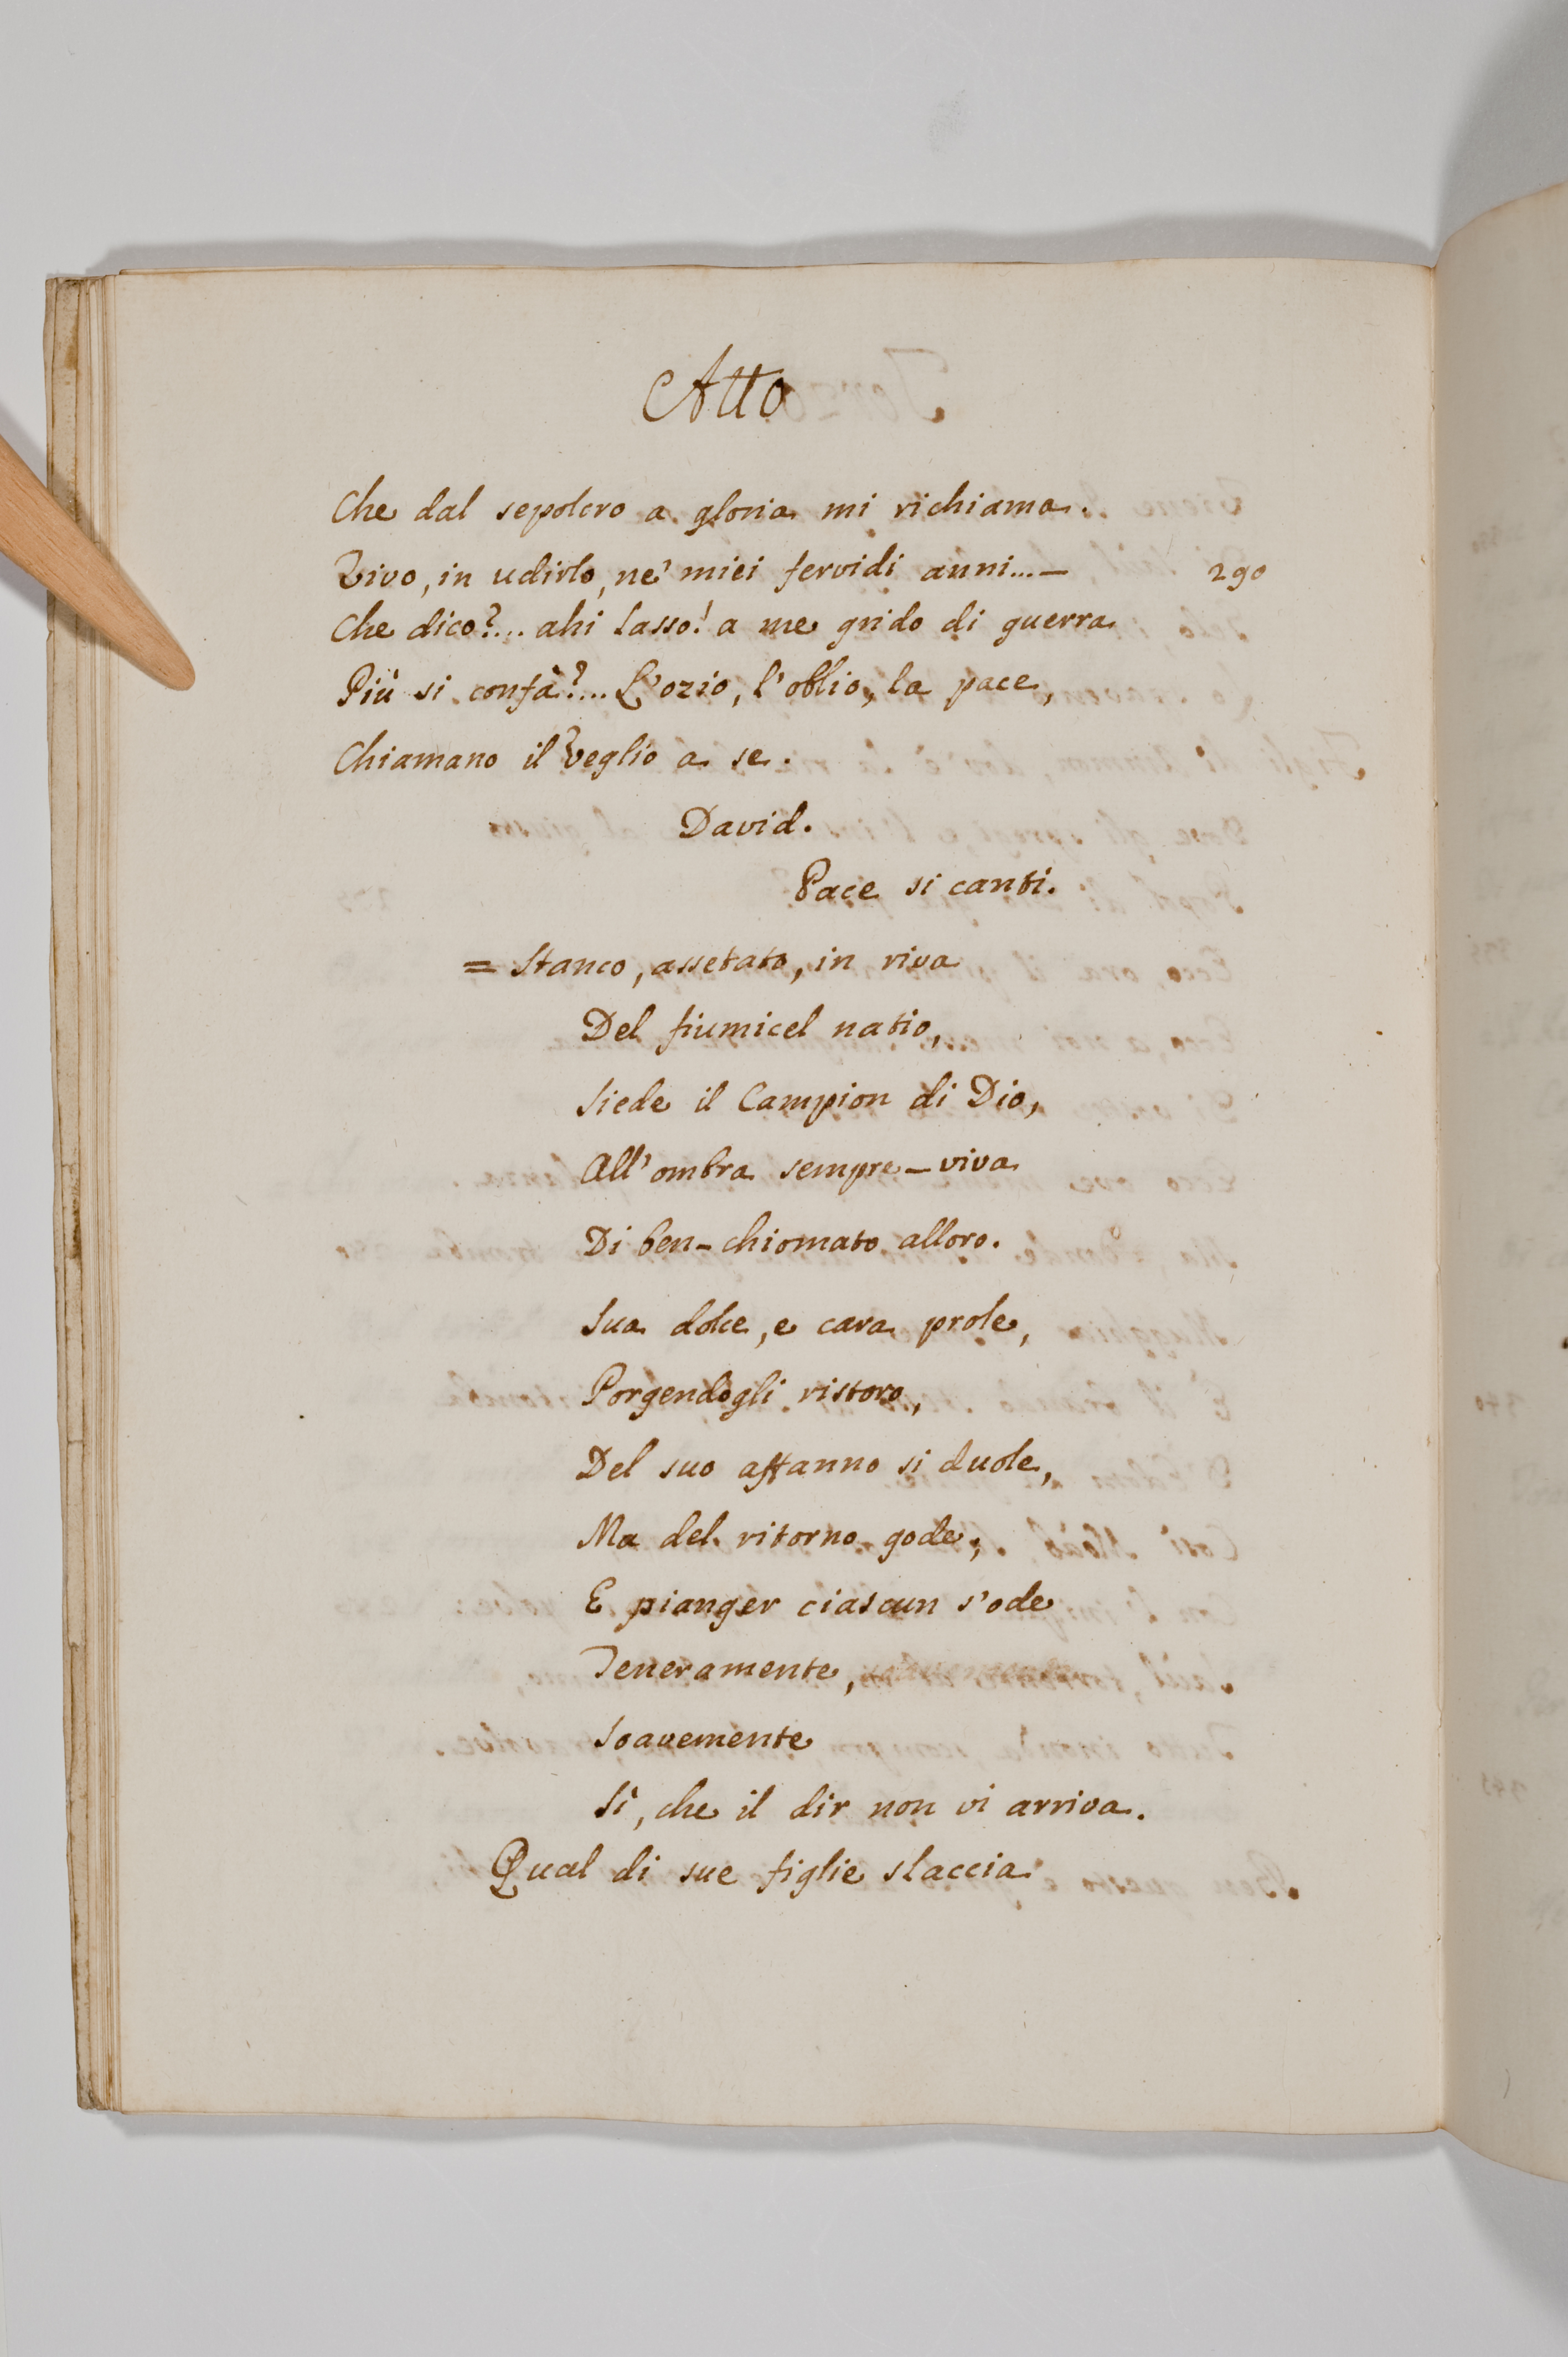 Atto
Che dal sepolcro a gloria mi richiama.
Vivo, in udirlo, ne' miei fervidi anni...—
290
Che dico?... ahi lasso! a me grido di guerra
Più si confà?... L'ozio, l'oblio, la pace,
Chiamano il Veglio a se.
David.
Pace si canti.
= Stanco, assetato, in riva
Del fiumicel natio,
Siede il Campion di Dio,
All'ombra sempre-viva
Di ben-chiomato alloro.
Sua dolce, e cara prole,
Porgendogli ristoro,
Del suo affanno si duole,
Ma del ritorno gode;
E pianger ciascun s'ode
Teneramente,
Soavemente
Sì, che il dir non vi arriva.
Qual di sue figlie slaccia